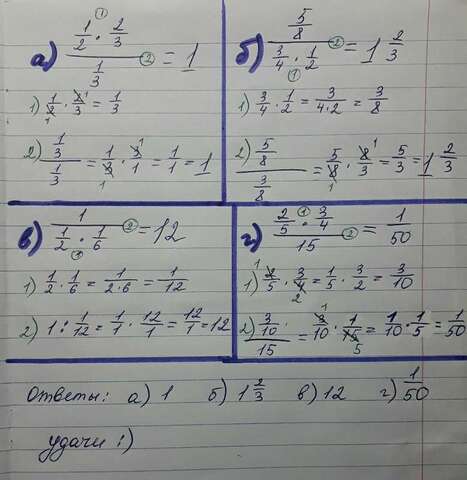 а) (1/2 · 2/3) / (1/3) = 1
1) 1/2 · 2/3 = 1/3
2) (1/3) / (1/3) = 1/3 · 3/1 = 1/1 = 1
б) (5/8) / (3/4 · 1/2) = 1 2/3
1) 3/4 · 1/2 = 3/(4·2) = 3/8
2) (5/8) / (3/8) = 5/8 · 8/3 = 5/3 = 1 2/3
в) 1 / (1/2 · 1/6) = 12
1) 1/2 · 1/6 = 1/(2·6) = 1/12
2) 1 : 1/12 = 1/1 · 12/1 = 12/1 = 12
г) (2/5 · 3/4) / 15 = 1/50
1) 2/5 · 3/4 = 1/5 · 3/2 = 3/10
2) (3/10) / 15 = 3/10 · 1/15 = 1/10 · 1/5 = 1/50
Ответы: а) 1 б) 1 2/3 в) 12 г) 1/50
удачи :)